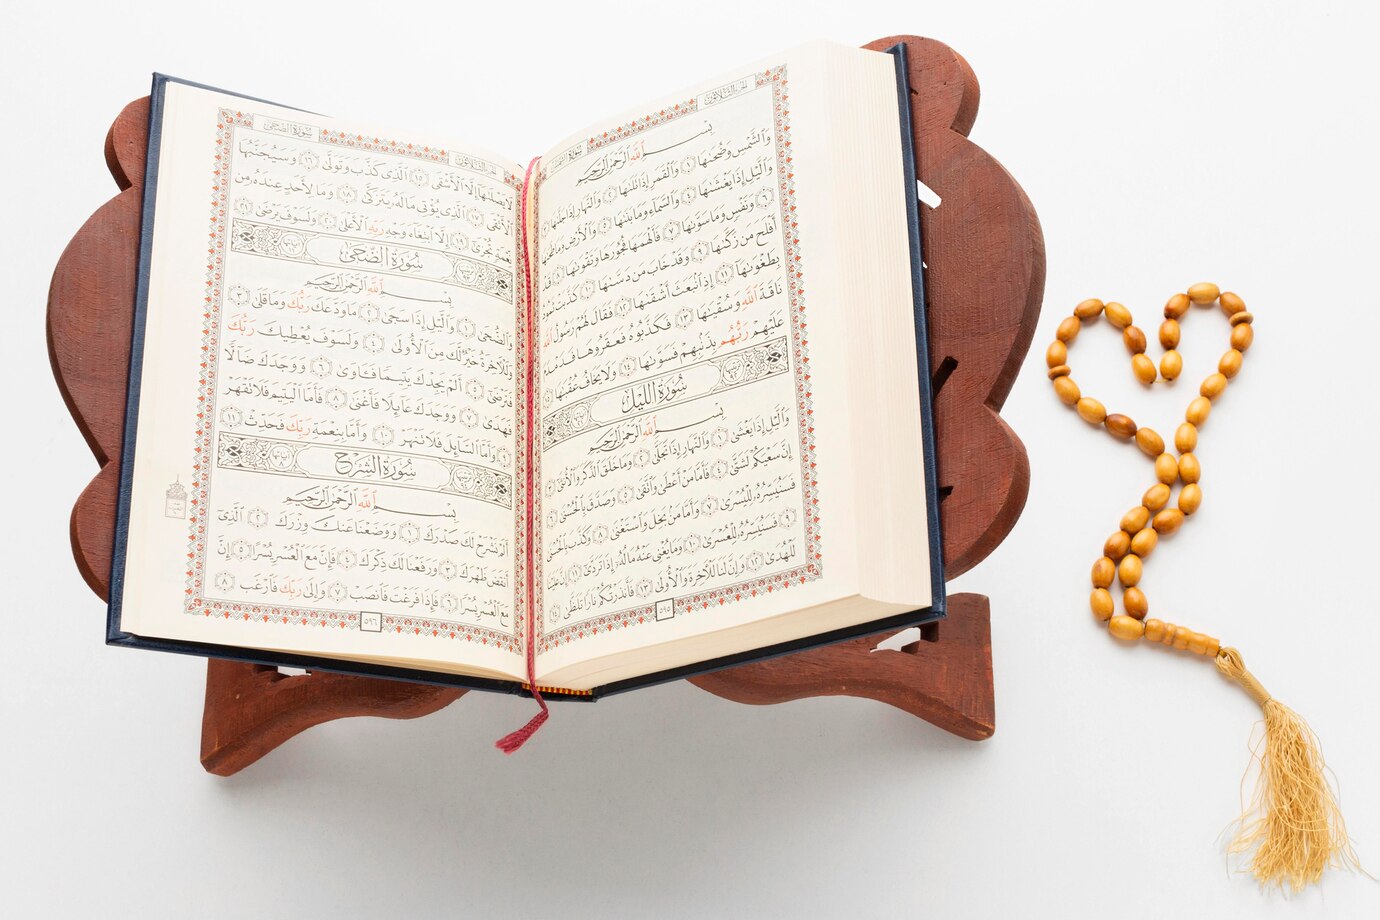 الجزء الثلاثون سورة الشمس
بِسْمِ ٱللَّهِ ٱلرَّحْمَٰنِ ٱلرَّحِيمِ
وَٱلشَّمْسِ وَضُحَىٰهَا ١ وَٱلْقَمَرِ إِذَا تَلَىٰهَا ٢ وَٱلنَّهَارِ إِذَا جَلَّىٰهَا ٣
وَٱلَّيْلِ إِذَا يَغْشَىٰهَا ٤ وَٱلسَّمَآءِ وَمَا بَنَىٰهَا ٥ وَٱلْأَرْضِ وَمَا طَحَىٰهَا
٦ وَنَفْسٍ وَمَا سَوَّىٰهَا ٧ فَأَلْهَمَهَا فُجُورَهَا وَتَقْوَىٰهَا ٨ قَدْ
أَفْلَحَ مَن زَكَّىٰهَا ٩ وَقَدْ خَابَ مَن دَسَّىٰهَا ١٠ كَذَّبَتْ ثَمُودُ
بِطَغْوَىٰهَآ ١١ إِذِ ٱنۢبَعَثَ أَشْقَىٰهَا ١٢ فَقَالَ لَهُمْ رَسُولُ ٱللَّهِ
نَاقَةَ ٱللَّهِ وَسُقْيَٰهَا ١٣ فَكَذَّبُوهُ فَعَقَرُوهَا فَدَمْدَمَ
عَلَيْهِمْ رَبُّهُم بِذَنۢبِهِمْ فَسَوَّىٰهَا ١٤ وَلَا يَخَافُ عُقْبَٰهَا ١٥
سُورَةُ اللَّيْلِ
بِسْمِ ٱللَّهِ ٱلرَّحْمَٰنِ ٱلرَّحِيمِ
وَٱلَّيْلِ إِذَا يَغْشَىٰ ١ وَٱلنَّهَارِ إِذَا تَجَلَّىٰ ٢ وَمَا خَلَقَ ٱلذَّكَرَ وَٱلْأُنثَىٰٓ ٣
إِنَّ سَعْيَكُمْ لَشَتَّىٰ ٤ فَأَمَّا مَنْ أَعْطَىٰ وَٱتَّقَىٰ ٥ وَصَدَّقَ بِٱلْحُسْنَىٰ ٦
فَسَنُيَسِّرُهُۥ لِلْيُسْرَىٰ ٧ وَأَمَّا مَنۢ بَخِلَ وَٱسْتَغْنَىٰ ٨ وَكَذَّبَ بِٱلْحُسْنَىٰ
٩ فَسَنُيَسِّرُهُۥ لِلْعُسْرَىٰ ١٠ وَمَا يُغْنِى عَنْهُ مَالُهُۥٓ إِذَا تَرَدَّىٰٓ ١١ إِنَّ عَلَيْنَا
لَلْهُدَىٰ ١٢ وَإِنَّ لَنَا لَلْءَاخِرَةَ وَٱلْأُولَىٰ ١٣ فَأَنذَرْتُكُمْ نَارًا تَلَظَّىٰ ١٤
٥٩٥
الجزء الثلاثون سورة الضحى
لَا يَصْلَىٰهَآ إِلَّا ٱلْأَشْقَى ١٥ ٱلَّذِى كَذَّبَ وَتَوَلَّىٰ ١٦ وَسَيُجَنَّبُهَا
ٱلْأَتْقَى ١٧ ٱلَّذِى يُؤْتِى مَالَهُۥ يَتَزَكَّىٰ ١٨ وَمَا لِأَحَدٍ عِندَهُۥ مِن
نِّعْمَةٍ تُجْزَىٰٓ ١٩ إِلَّا ٱبْتِغَآءَ وَجْهِ رَبِّهِ ٱلْأَعْلَىٰ ٢٠ وَلَسَوْفَ يَرْضَىٰ ٢١
سُورَةُ الضُّحَىٰ
بِسْمِ ٱللَّهِ ٱلرَّحْمَٰنِ ٱلرَّحِيمِ
وَٱلضُّحَىٰ ١ وَٱلَّيْلِ إِذَا سَجَىٰ ٢ مَا وَدَّعَكَ رَبُّكَ وَمَا قَلَىٰ ٣
وَلَلْءَاخِرَةُ خَيْرٌ لَّكَ مِنَ ٱلْأُولَىٰ ٤ وَلَسَوْفَ يُعْطِيكَ رَبُّكَ
فَتَرْضَىٰٓ ٥ أَلَمْ يَجِدْكَ يَتِيمًا فَـَٔاوَىٰ ٦ وَوَجَدَكَ ضَآلًّا
فَهَدَىٰ ٧ وَوَجَدَكَ عَآئِلًا فَأَغْنَىٰ ٨ فَأَمَّا ٱلْيَتِيمَ فَلَا تَقْهَرْ
٩ وَأَمَّا ٱلسَّآئِلَ فَلَا تَنْهَرْ ١٠ وَأَمَّا بِنِعْمَةِ رَبِّكَ فَحَدِّثْ ١١
سُورَةُ الشَّرْحِ
بِسْمِ ٱللَّهِ ٱلرَّحْمَٰنِ ٱلرَّحِيمِ
أَلَمْ نَشْرَحْ لَكَ صَدْرَكَ ١ وَوَضَعْنَا عَنكَ وِزْرَكَ ٢ ٱلَّذِىٓ
أَنقَضَ ظَهْرَكَ ٣ وَرَفَعْنَا لَكَ ذِكْرَكَ ٤ فَإِنَّ مَعَ ٱلْعُسْرِ يُسْرًا ٥ إِنَّ
مَعَ ٱلْعُسْرِ يُسْرًا ٦ فَإِذَا فَرَغْتَ فَٱنصَبْ ٧ وَإِلَىٰ رَبِّكَ فَٱرْغَب ٨
٥٩٦